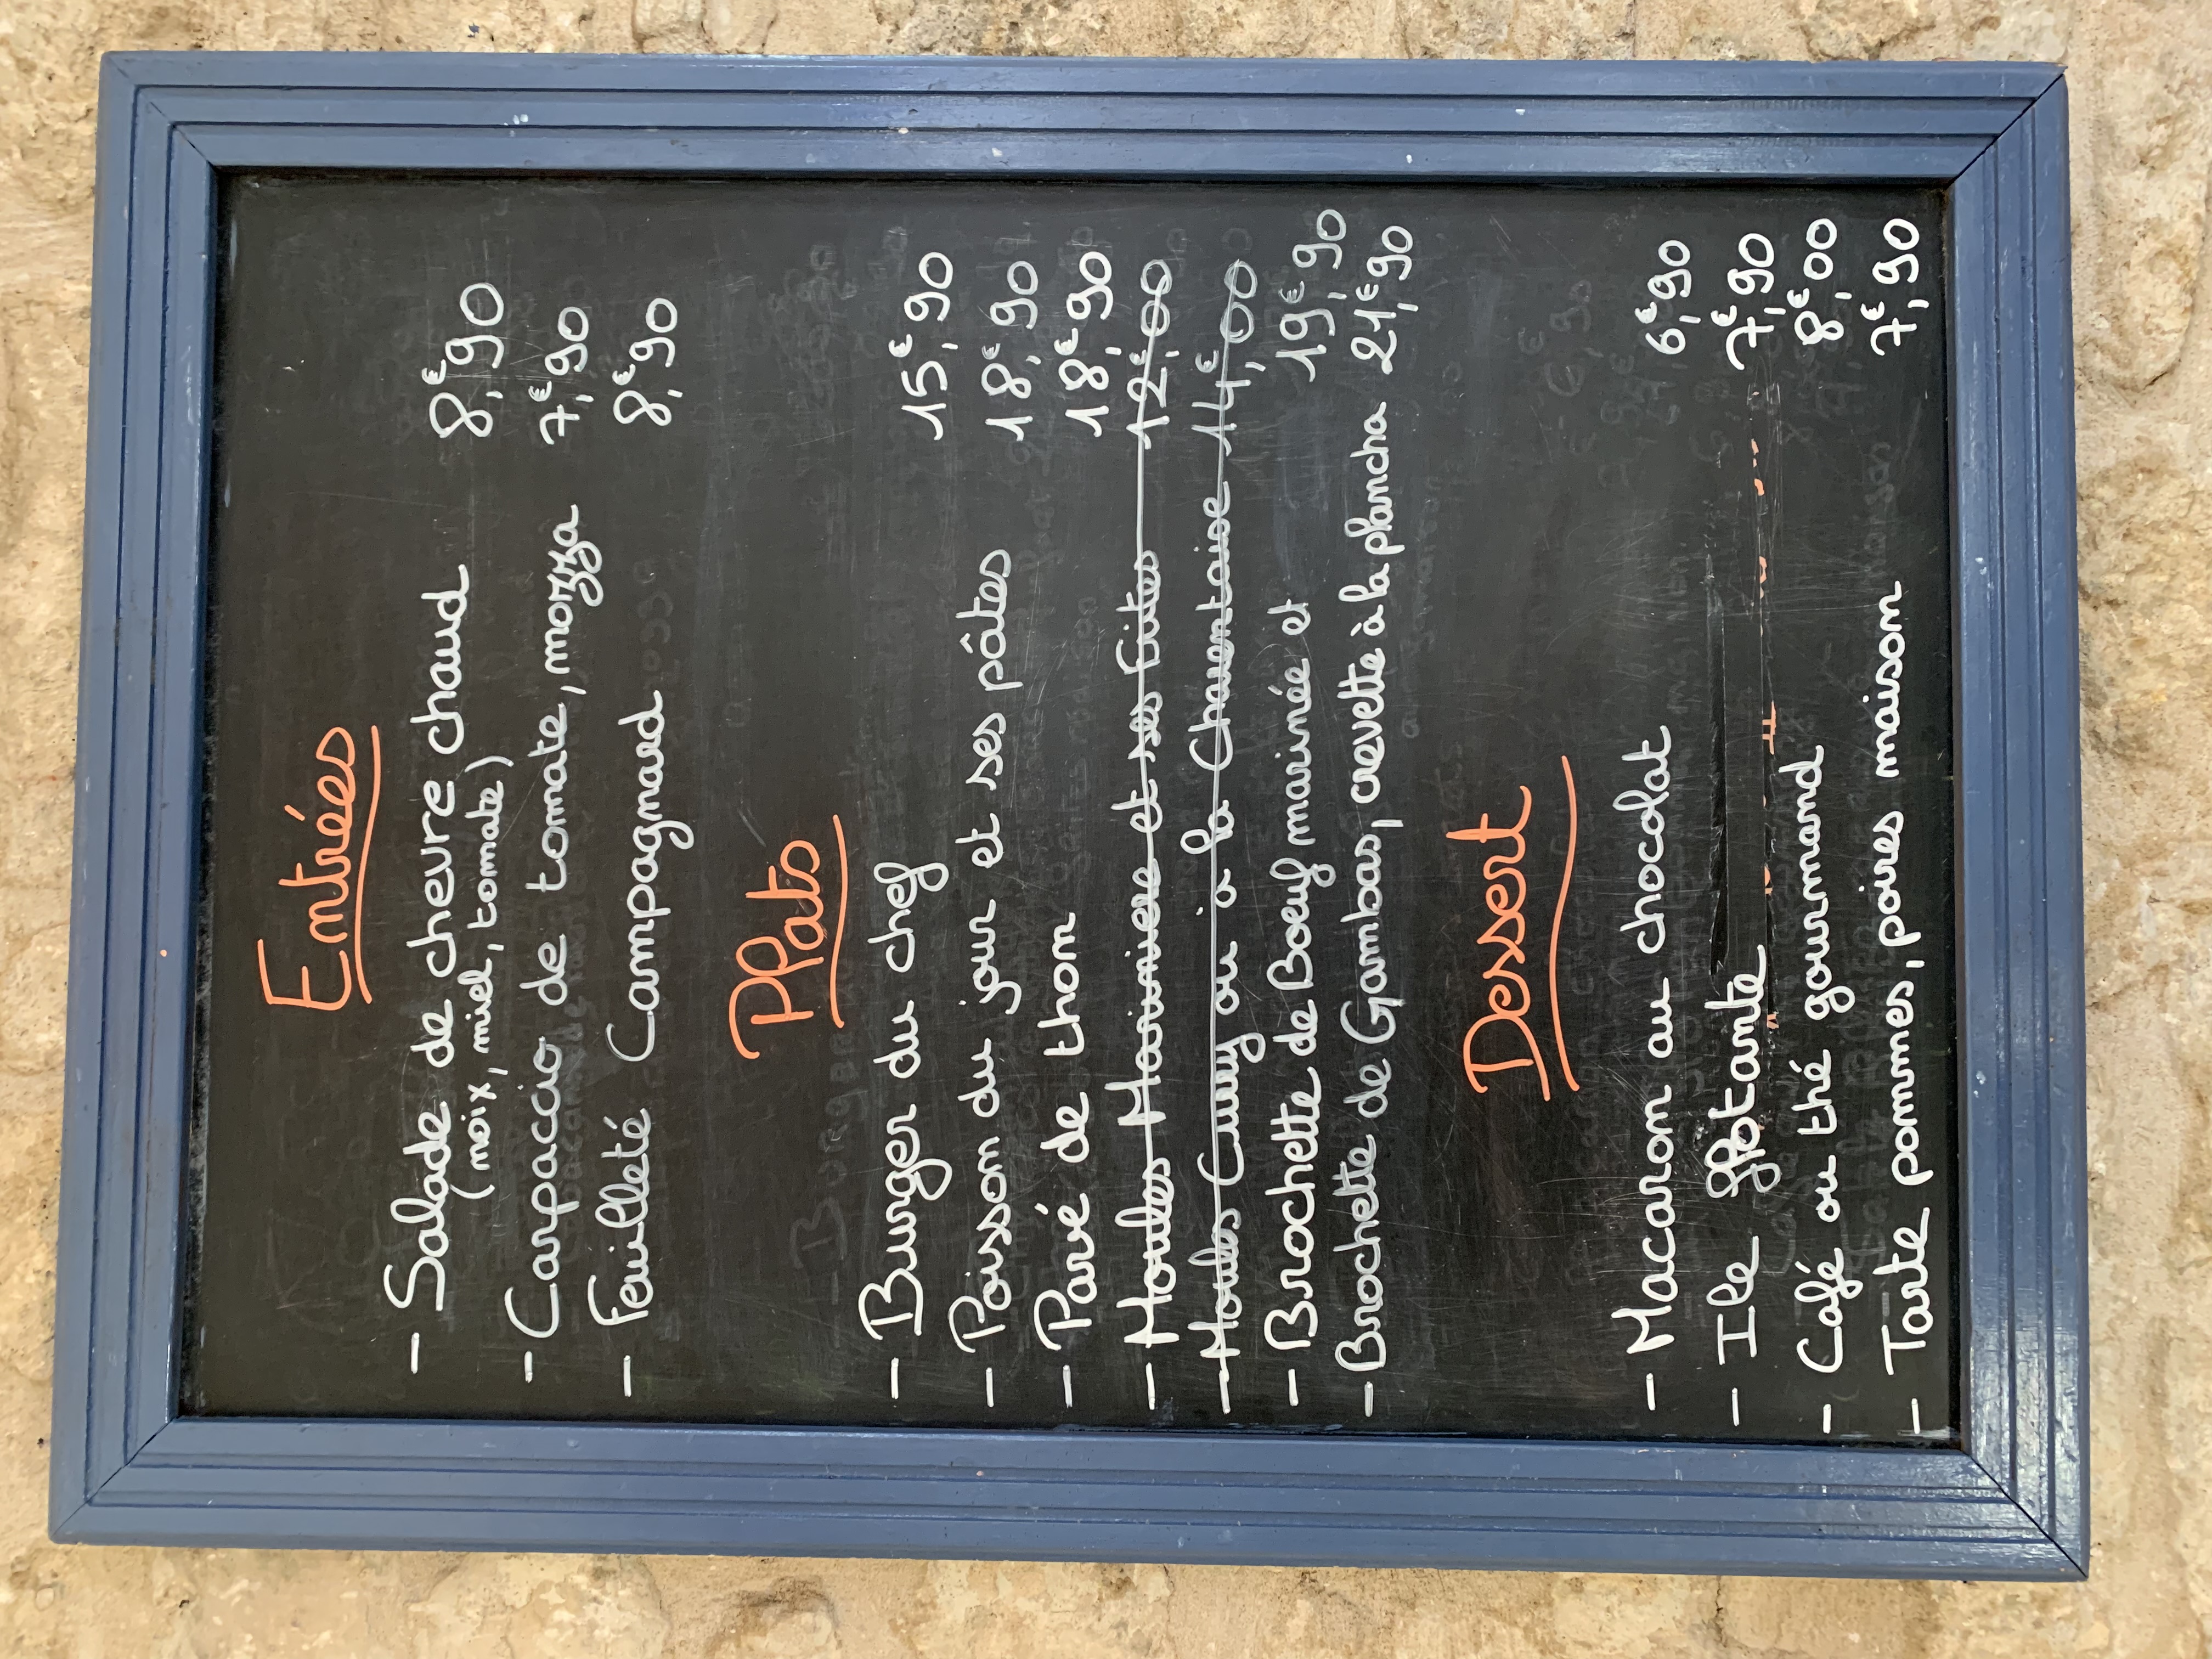 Entrées
- Salade de chevre chaud 8€,90
(noix, miel, tomate)
- Carpaccio de tomate, mozza 7€,90
- Feuilleté Campagnard 8€,90
Plats
- Burger du chef 15€,90
- Poisson du jour et ses pâtes 18€,90
- Pavé de thon 18€,90
- Moules Mariniere et ses frites 12€,00
- Moules Curry ou à la Charentaise 14€,00
- Brochette de Boeuf marinée et 19€,90
- Brochette de Gambas, crevette à la plancha 21€,90
Dessert
- Macaron au chocolat 6€,90
- Ile flotante 7€,90
- Café ou thé gourmand 8€,00
- Tarte pommes, poires maison 7€,90